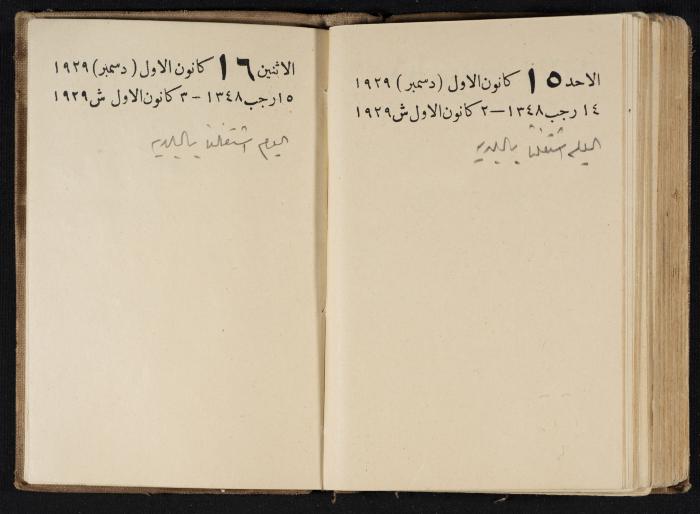 الاحد ١٥ كانون الاول (دسمبر) ١٩٢٩
١٤ رجب ١٣٤٨ — ٢ كانون الاول ش ١٩٢٩
اشتغلنا بالبلديه
الاثنين ١٦ كانون الاول (دسمبر) ١٩٢٩
١٥ رجب ١٣٤٨ - ٣ كانون الاول ش ١٩٢٩
اليوم اشتغلنا بالبلديه